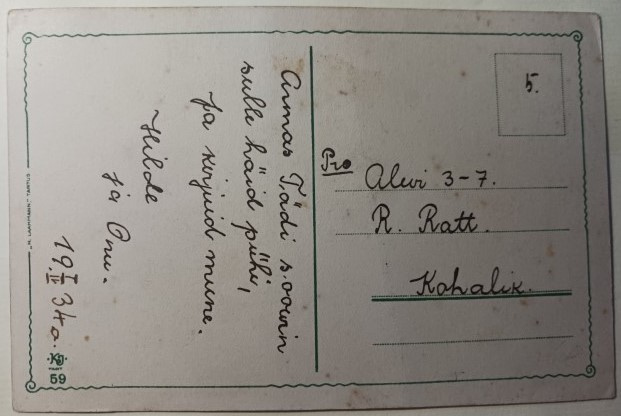 Armas Tädi soovin
sulle häid pühi,
ja kirjuid mune.
Hilde
ja Onu.
19. I/IV 34 a.
5.
Pro
Alevi 3-7.
R. Ratt.
Kohalik.
59